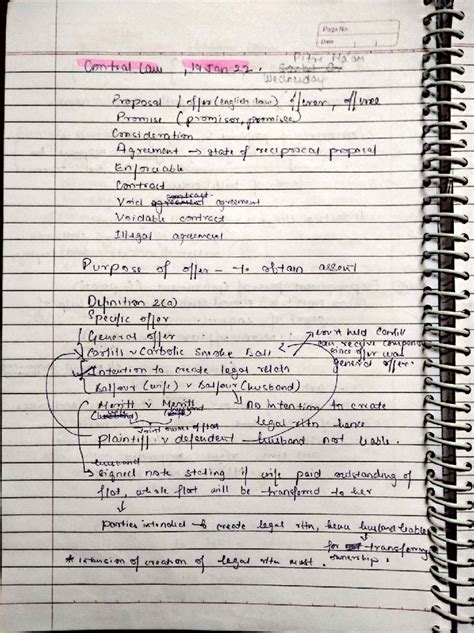 Page No.
Date
Contract Law , 19 Jan 22.
Ma'am
Wednesday
Proposal / offer (english law) offeror, offree
Promise (promisor, promisee)
Consideration
Agreement → state of reciprocal proposal
Enforceable
Contract
Void agreement
Voidable contract
Illegal agreement
Purpose of offer - to obtain assent
Definition 2(a)
Specific offer
General offer
Carlill v Carbolic Smoke Ball
court held Carlill can receive since offer was general offer.
Intention to create legal reltn
Balfour (wife) v Balfour (husband)
No intention to create legal rltn hence husband not liable.
Merritt v Merritt
(husband) (wife)
joint owner of flat
plaintiff v dependent
husband
signed note stating if wife paid outstanding of
flat, whole flat will be transferred to her
parties intended to create legal rltn, hence husband liable
for transferring ownership.
* of creation of legal rltn must.